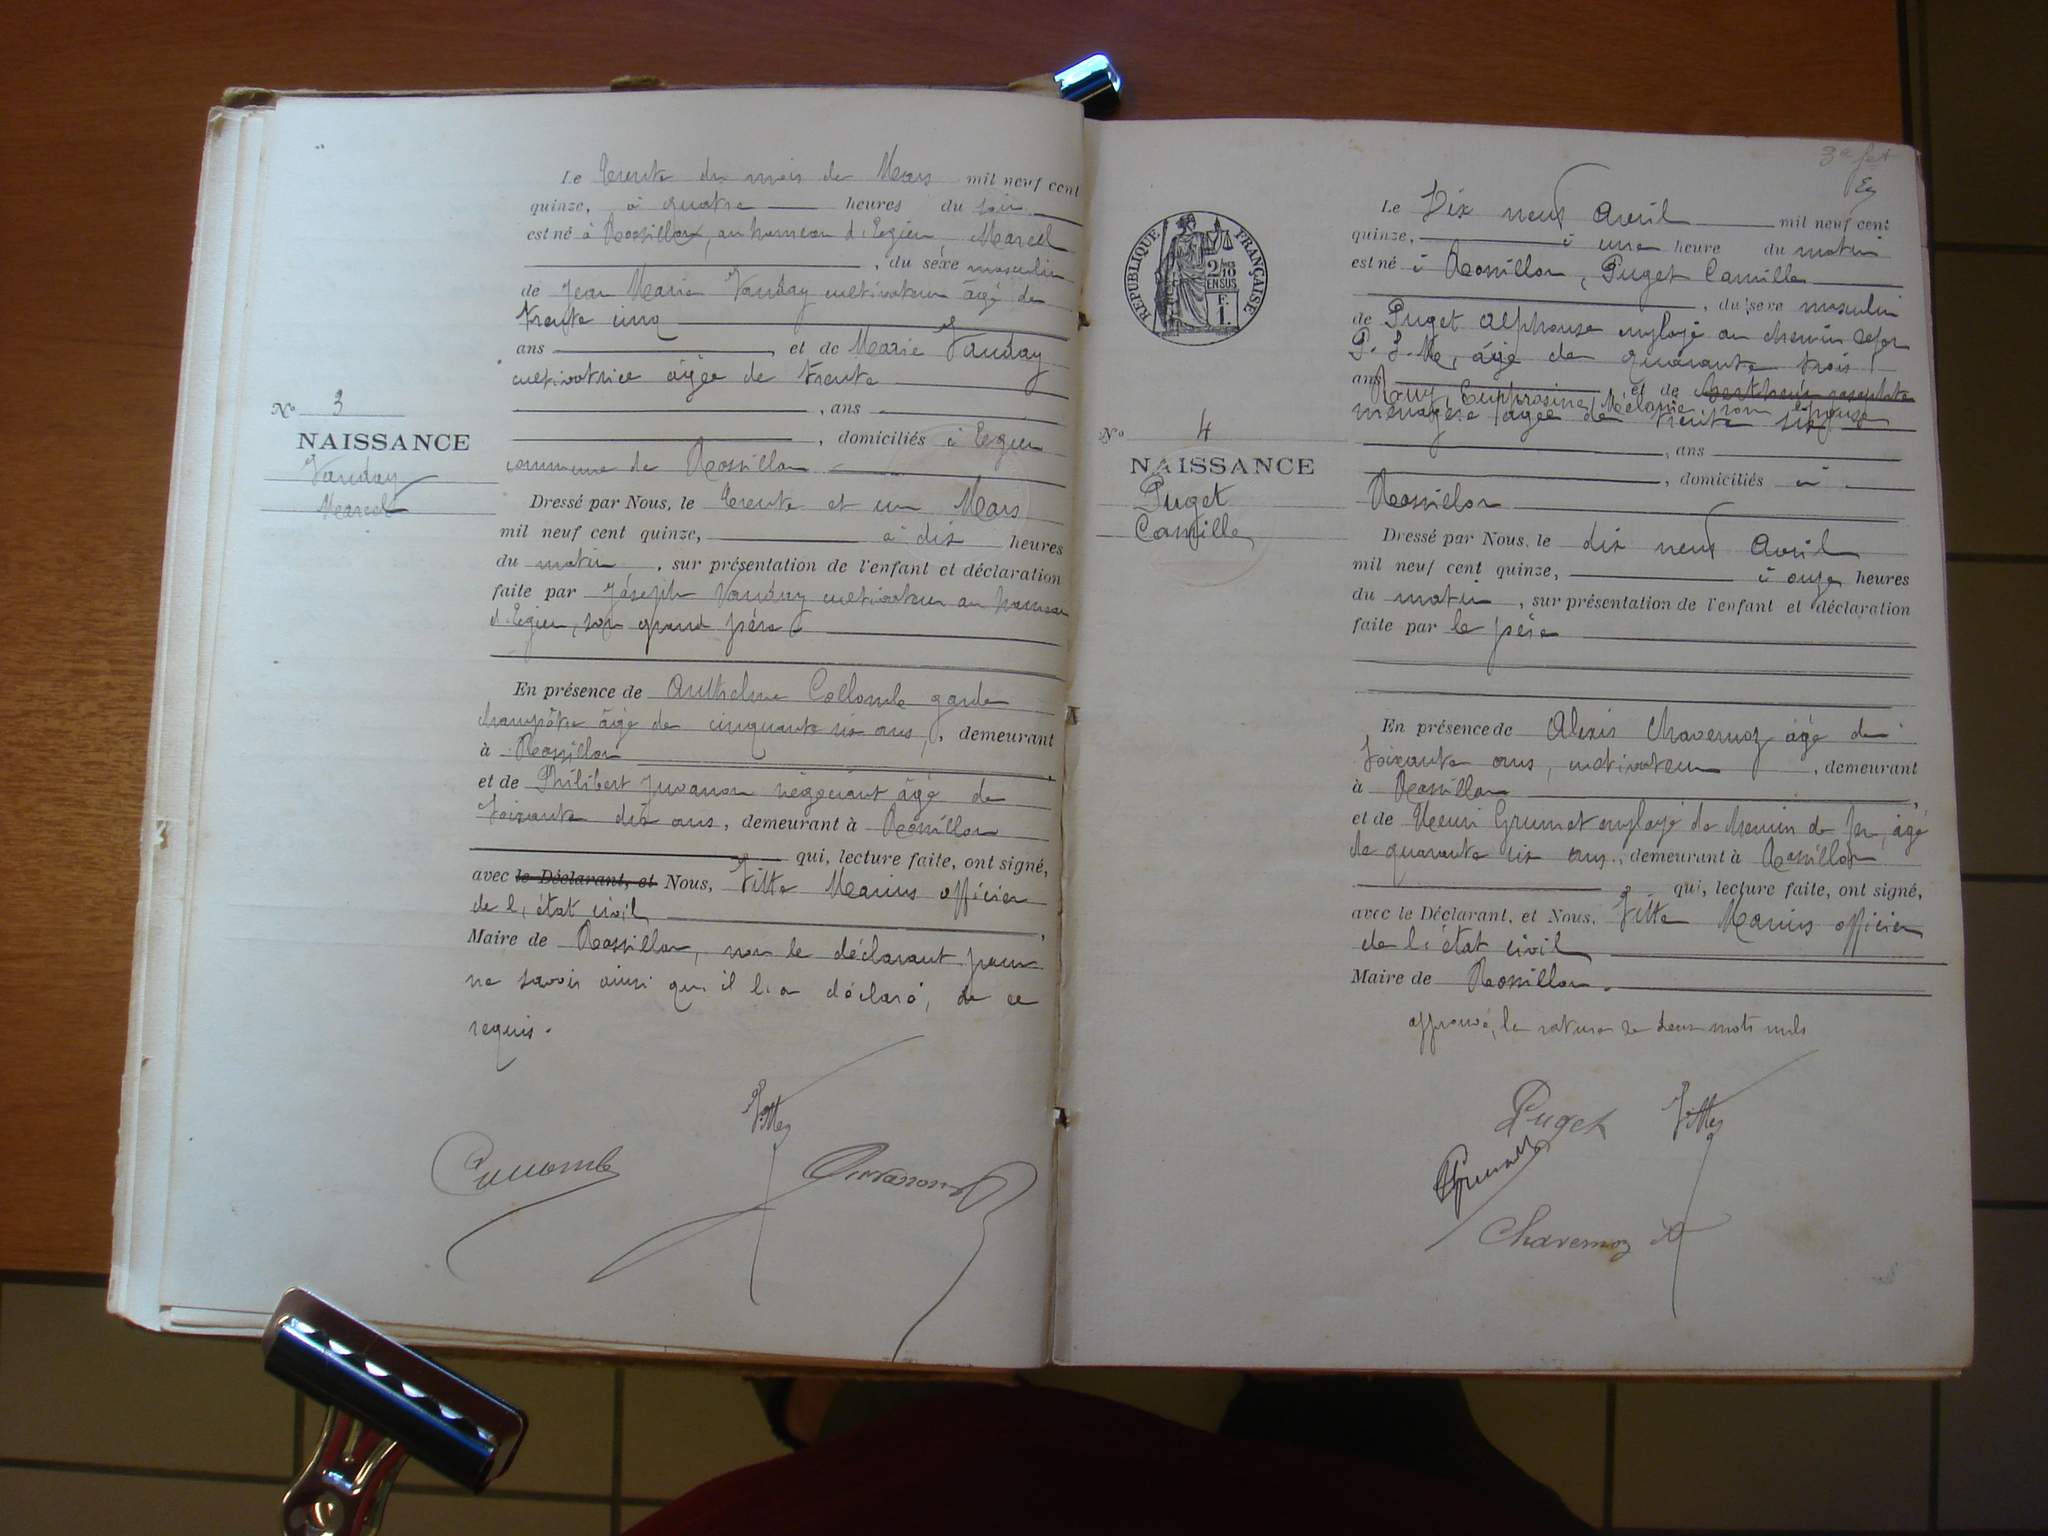 Le trente du mois de Mars mil neuf cent
quinze, à quatre heures du soir
est né à Rossillon, au hameau d'Egieu, Marcel
, du sexe masculin
de Jean Marie Vauday cultivateur âgé de
trente cinq
ans et de Marie Vauday
cultivatrice âgée de trente
, ans
, domiciliés à Egieu
commune de Rossillon
Dressé par Nous, le trente et un Mars
mil neuf cent quinze, à dix heures
du matin, sur présentation de l'enfant et déclaration
faite par Joseph Vauday cultivateur au hameau
d'Egieu, son grand père
En présence de Anthelme Collomb garde
champêtre âgé de cinquante six ans, demeurant
à Rossillon
et de Philibert Juvanon négociant âgé de
soixante dix ans, demeurant à Rossillon
qui, lecture faite, ont signé,
avec le Déclarant, et Nous, Vitte Marius officier
de l'état civil
Maire de Rossillon, non le déclarant pour
ne savoir ainsi qu'il l'a déclaré, de ce
requis.
No 3
NAISSANCE
Vauday
Marcel
Vitte
Collomb
Juvanon
RÉPUBLIQUE FRANÇAISE
2/10
EN SUS
F.
1.
No 4
NAISSANCE
Puget
Camille
Le Dix neuf Avril mil neuf cent
quinze, à une heure du matin
est né à Rossillon, Puget Camille
, du sexe masculin
de Puget Alphonse employé au chemin de fer
P. L. M, âgé de quarante trois
ans et de
Mélanie son épouse
ménagère âgée de trente six
, ans
, domiciliés à
Rossillon
Dressé par Nous, le dix neuf Avril
mil neuf cent quinze, à onze heures
du matin, sur présentation de l'enfant et déclaration
faite par le père
En présence de Alexis Chavernoz âgé de
soixante ans, cultivateur, demeurant
à Rossillon
et de Henri Grumet employé de chemin de fer, âgé
de quarante six ans, demeurant à Rossillon
qui, lecture faite, ont signé,
avec le Déclarant, et Nous, Vitte Marius officier
de l'état civil
Maire de Rossillon.
approuvé, la rature de deux mots nuls
Puget Vitte
Grumet
Chavernoz A